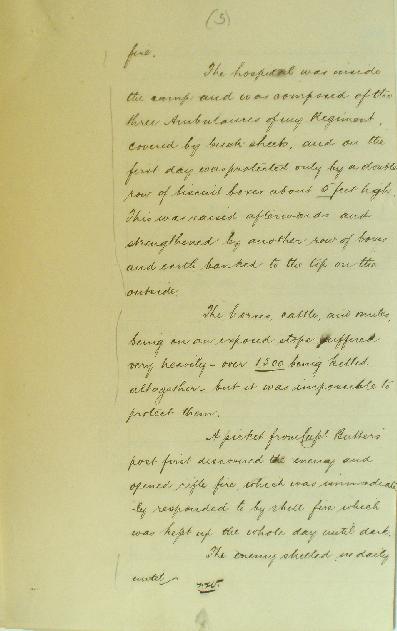 (5)
fire.
The hospital was inside
the camp and was composed of the
three Ambulances of my Regiment,
covered by buck sheets, and on the
first day was protected only by a double
row of biscuit boxes about 5 feet high.
This was raised afterwards and
strengthened by another row of boxes
and earth banked to the top on the
outside.
The horses, cattle, and mules,
being on an exposed slope suffered
very heavily - over 1300 being killed
altogether - but it was impossible to
protect them.
A picket from Capt Butters
post first discovered the enemy and
opened rifle fire which was immediate
-ly responded to by shell fire which
was kept up the whole day until dark.
The enemy shelled us daily
until